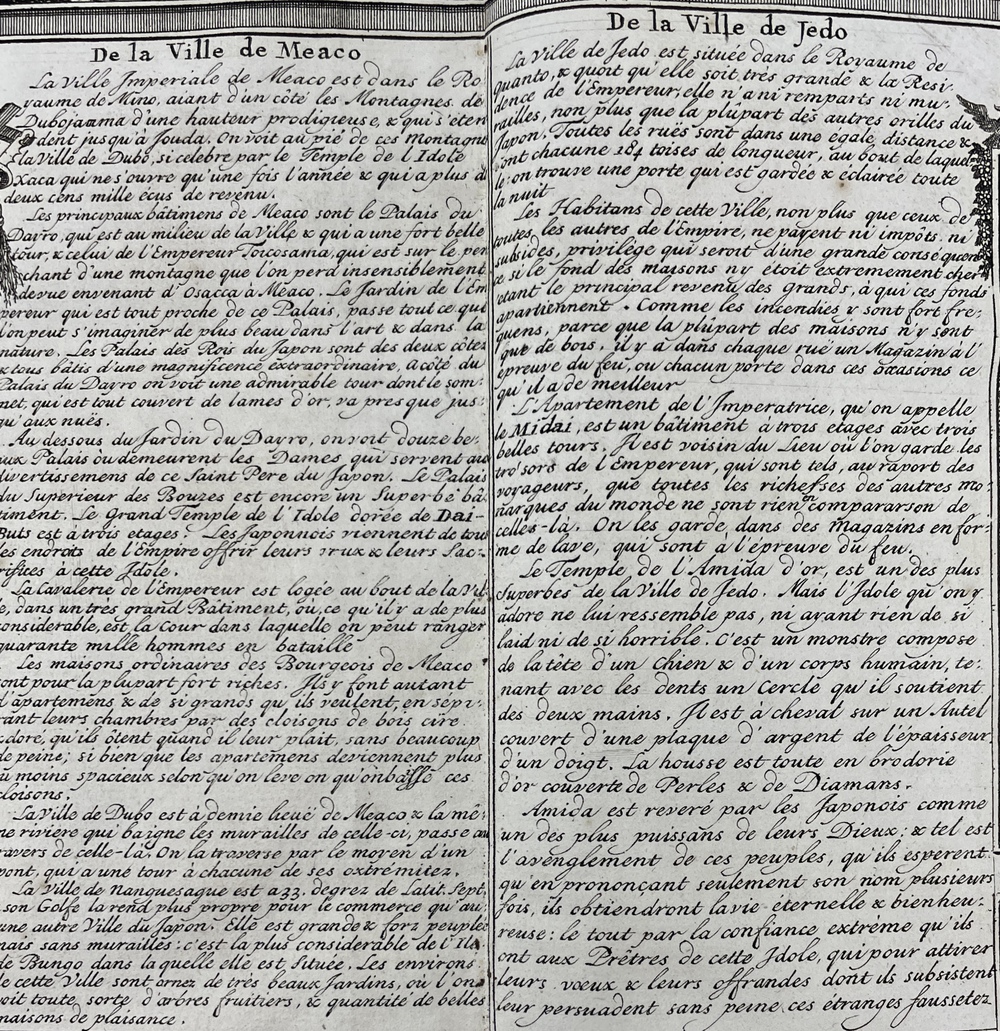 De la Ville de Meaco
La Ville Imperiale de Meaco est dans le Ro
yaume de Mino, aiant d'un côté les Montagnes de
Dubojaama d'une hauteur prodigieuse, & qui s'éten
dent jusqu'à Jouda. On voit au pié de ces Montagn
la Ville de Dubo, si celebre par le Temple de l'Idole
Xaca qui ne s'ouvre qu'une fois l'année & qui a plus d
deux cens mille écus de revenu.
Les principaux bâtimens de Meaco sont le Palais du
Dayro, qui est au milieu de la Ville & qui a une fort belle
tour, & celui de l'Empereur Toicosama, qui est sur le pen
chant d'une montagne que l'on perd insensiblement
de vue en venant d'Osacca à Méaco. Le Jardin de l'Em
pereur qui est tout proche de ce Palais, passe tout ce qui
l'on peut s'imaginer de plus beau dans l'art & dans la
nature. Les Palais des Rois du Japon sont des deux côtez
& tous bâtis d'une magnificence extraordinaire, à côté du
Palais du Dayro on voit une admirable tour dont le som-
met, qui est tout couvert de lames d'or, va presque jus-
qu'aux nuës.
Au dessous du Jardin du Dayro, on voit douze be-
aux Palais où demeurent les Dames qui servent au
divertissemens de ce Saint Pere du Japon. Le Palais
du Superieur des Bouzes est encore un Superbe bâ-
timent. Le Grand Temple de l'Idole dorée de Dai-
Buts est à trois etages: Les Japonnois viennent de tou
les endroits de l'Empire offrir leurs vœux & leurs Sac-
rifices à cette Idole.
La Cavalerie de l'Empereur est logée au bout de la Vil
e, dans un tres grand Bâtiment, ou, ce qu'il y a de plus
considerable, est la Cour dans laquelle on peut ranger
quarante mille hommes en bataille
Les maisons ordinaires des Bourgeois de Meaco
ont pour la plupart fort riches. Ils y font autant
d'apartemens & de si grands qu'ils veulent, en sepa-
rant leurs chambres par des cloisons de bois ciré
doré, qu'ils ôtent quand il leur plait, sans beaucoup
de peine; si bien que les apartemens deviennent plus
u moins spacieux selon qu'on leve on qu'on baisse ces
cloisons.
La Ville de Dubo est à demie lieuë de Meaco & la mê-
me riviere qui baigne les murailles de celle-ci, passe au
ravers de celle-là. On la traverse par le moyen d'un
pont, qui a une tour à chacune de ses extrémitez.
La Ville de Nanguesaque est a 33. degrez de Latit. Sept.
son Golfe la rend plus propre pour le commerce qu'au-
une autre Ville du Japon. Elle est grande & fort peuplée
mais sans murailles: c'est la plus considerable de l'Ile
de Bungo dans laquelle elle est située. Les environs
de cette Ville sont ornez de très beaux Jardins, où l'on
voit toute sorte d'arbres fruitiers, & quantité de belles
maisons de plaisance.
De la Ville de Jedo
La Ville de Jedo est située dans le Royaume de
Quanto, & quoit qu'elle soit très grande & la Resi-
dence de l'Empereur, elle n'a ni remparts ni mu-
railles, non plus que la plûpart des autres orilles du
Japon. Toutes les ruës sont dans une égale distance &
ont chacune 184 toises de longueur, au bout de laquel-
le on trouve une porte qui est gardée & éclairée toute
la nuit
Les Habitans de cette Ville, non plus que ceux de
toutes les autres de l'Empire, ne payent ni impôts ni
subsides, privilege qui seroit d'une grande consequen-
ce si le fond des maisons n'y étoit extremement cher
etant le principal revenu des grands, à qui ces fonds
apartiennent. Comme les incendies y sont fort fre-
quens, parce que la plûpart des maisons n'y sont
que de bois, il y a dans chaque ruë un Magazin à l'
épreuve du feu, ou chacun porte dans ces occasions ce
qu'il a de meilleur
L'Apartement de l'Imperatrice, qu'on appelle
le Midai, est un bâtiment à trois etages avec trois
belles tours, Il est voisin du Lieu où l'on garde les
tresors de l'Empereur, qui sont tels, au raport des
voyageurs, que toutes les richesses des autres mo-
narques du monde ne sont rien en comparaison de
celles-là. On les garde dans des magazins en for-
me de lave, qui sont à l'épreuve du feu.
Le Temple de l'Amida d'or, est un des plus
Superbes de la Ville de Jedo. Mais l'Idole qu'on y
adore ne lui ressemble pas, ni ayant rien de si
laid ni de si horrible. C'est un monstre compose
de la tête d'un Chien & d'un corps humain, te-
nant avec les dents un Cercle qu'il soutient
des deux mains. Il est à cheval sur un Autel
couvert d'une plaque d'argent de l'épaisseur
d'un doigt. La housse est toute en brodorie
d'or couverte de Perles & de Diamans.
Amida est reveré par les Japonois comme
un des plus puissans de leurs Dieux: & tel est
l'avenglement de ces peuples, qu'ils esperent
qu'en prononçant seulement son nom plusieurs
fois, ils obtiendront la vie éternelle & bienheu-
reuse: le tout par la confiance extrême qu'ils
ont aux Prêtres de cette Idole, qui pour attirer
leurs vœux & leurs offrandes dont ils subsistent
leur persuadent sans peine ces étranges faussetez